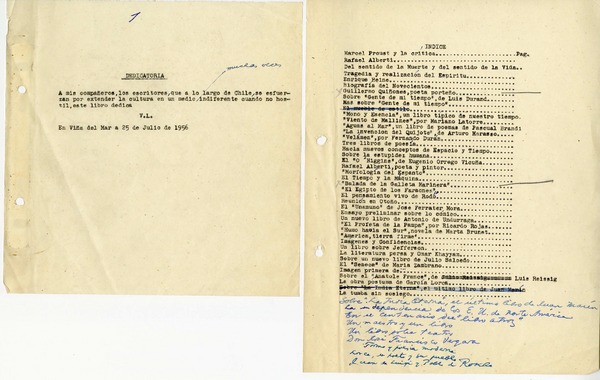 1
muchas veces
DEDICATORIA
A mis compañeros, los escritores, que a lo largo de Chile, se esfuer-
zan por extender la cultura en un medio, indiferente cuando no hos-
til, este libro dedico
V.L.
En Viña del Mar a 25 de Julio de 1956
INDICE
Marcel Proust y la crítica Pag.
Rafael Alberti
Del sentido de la Muerte y del sentido de la Vida
Tragedia y realización del Espíritu
Enrique Heine
Biografía del Novecientos
Guillermo Quiñonez, poeta porteño
Sobre "Gente de mi tiempo", de Luis Durand
Mas sobre "Gente de mi tiempo"
"Mono y Esencia", un libro típico de nuestro tiempo
"Viento de Mallines", por Mariano Latorre
"Aguas al Mar", un libro de poemas de Pascual Brandi
"La invencion del Quijote", de Arturo Marasso
"Velamen", por Fernando Durán
Tres libros de poesía
Hacia nuevos conceptos de Espacio y Tiempo
Sobre la estupidez humana
El "O'Higgins", de Eugenio Orrego Vicuña
Rafael Alberti, poeta y pintor
"Morfología del Espanto"
El Tiempo y la Máquina
"Balada de la Galleta Marinera"
"El Egipto de los Faraones"
El pensamiento vivo de Rodó
Reunión en Otoño
El "Unamuno" de Jose Ferrater Mora
Ensayo preliminar sobre lo cómico
Un nuevo libro de Antonio de Undurraga
"El Profeta de la Pampa", por Ricardo Rojas
"Humo hacia el Sur", novela de Marta Brunet
"America, tierra firme"
Imagenes y Confidencias
Un libro sobre Jefferson
La literatura persa y Omar Khayyam
Sobre un nuevo libro de Julio Salcedo
El "Seneca" de Maria Zambrano
Imagen primera de
Sobre el "Anatole France", de Luis Reissig
La obra postuma de García Lorca
Sobre "La Indi Eterna", el ultimo libro de Juan Marín
La tumba sin sosiego
Sobre "La India Eterna", el último libro de Juan Marín
La independencia de los E.U. de Norte America
En el centenario del "libro atroz"
Un maestro y un libro
Un libro sobre Teatro
Don Luis Francisco Vergara
Forma y poesía moderna
Lorca, el poeta y su pueblo